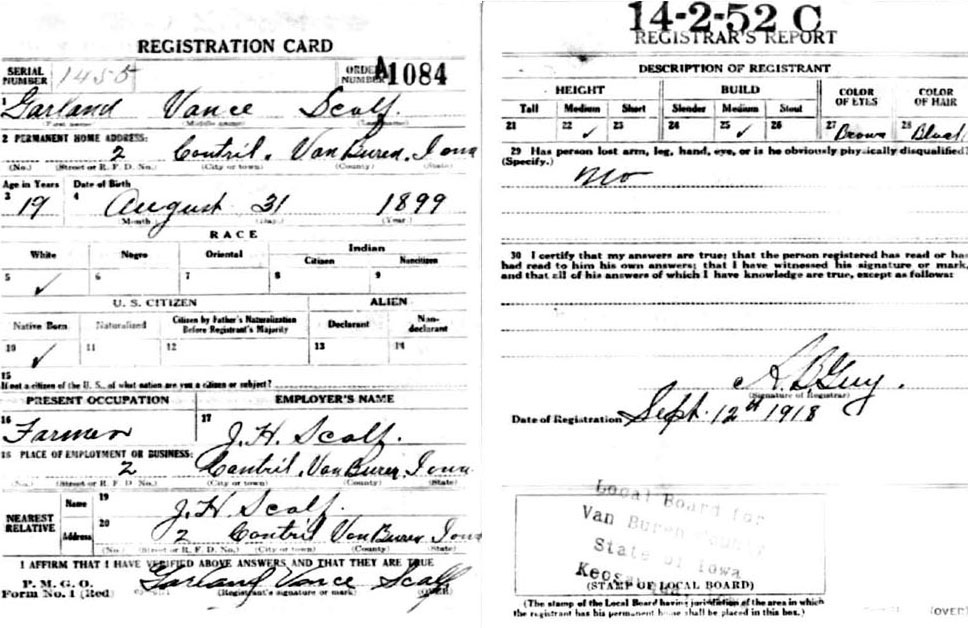 REGISTRATION CARD
SERIAL NUMBER 1455 ORDER NUMBER A1084
1 Garland Vance Scalf
(First name) (Middle name) (Last name)
2 PERMANENT HOME ADDRESS:
2 Cantril, Van Buren, Iowa
(No.) (Street or R. F. D. No.) (City or town) (County) (State)
Age in Years Date of Birth
3 19 4 August 31 1899
(Month) (Day) (Year)
RACE
White Negro Oriental Indian
Citizen Noncitizen
5 ✓ 6 7 8 9
U. S. CITIZEN ALIEN
Native Born Naturalized Citizen by Father's Naturalization Before Registrant's Majority Declarant Non-declarant
10 ✓ 11 12 13 14
15
If not a citizen of the U. S., of what nation are you a citizen or subject?
PRESENT OCCUPATION EMPLOYER'S NAME
16 Farmer 17 J. H. Scalf.
18 PLACE OF EMPLOYMENT OR BUSINESS:
2 Cantril, Van Buren, Iowa
(No.) (Street or R. F. D. No.) (City or town) (County) (State)
NEAREST RELATIVE Name 19 J. H. Scalf.
Address 20 2 Cantril Van Buren, Iowa
(No.) (Street or R. F. D. No.) (City or town) (County) (State)
I AFFIRM THAT I HAVE VERIFIED ABOVE ANSWERS AND THAT THEY ARE TRUE
P. M. G. O.
Form No. 1 (Red) Garland Vance Scalf
(Registrant's signature or mark) (OVER)
14-2-52 C
REGISTRAR'S REPORT
DESCRIPTION OF REGISTRANT
HEIGHT BUILD COLOR OF EYES COLOR OF HAIR
Tall Medium Short Slender Medium Stout
21 22 ✓ 23 24 25 ✓ 26 27 Brown 28 Black
29 Has person lost arm, leg, hand, eye, or is he obviously physically disqualified?
(Specify.)
No
30 I certify that my answers are true; that the person registered has read or has
had read to him his own answers; that I have witnessed his signature or mark,
and that all of his answers of which I have knowledge are true, except as follows:
A. B. Guy.
(Signature of Registrar)
Date of Registration Sept. 12th 1918
Local Board for
Van Buren County
State of Iowa
(STAMP OF LOCAL BOARD)
(The stamp of the Local Board having jurisdiction of the area in which
the registrant has his permanent home shall be placed in this box.)
(OVER)